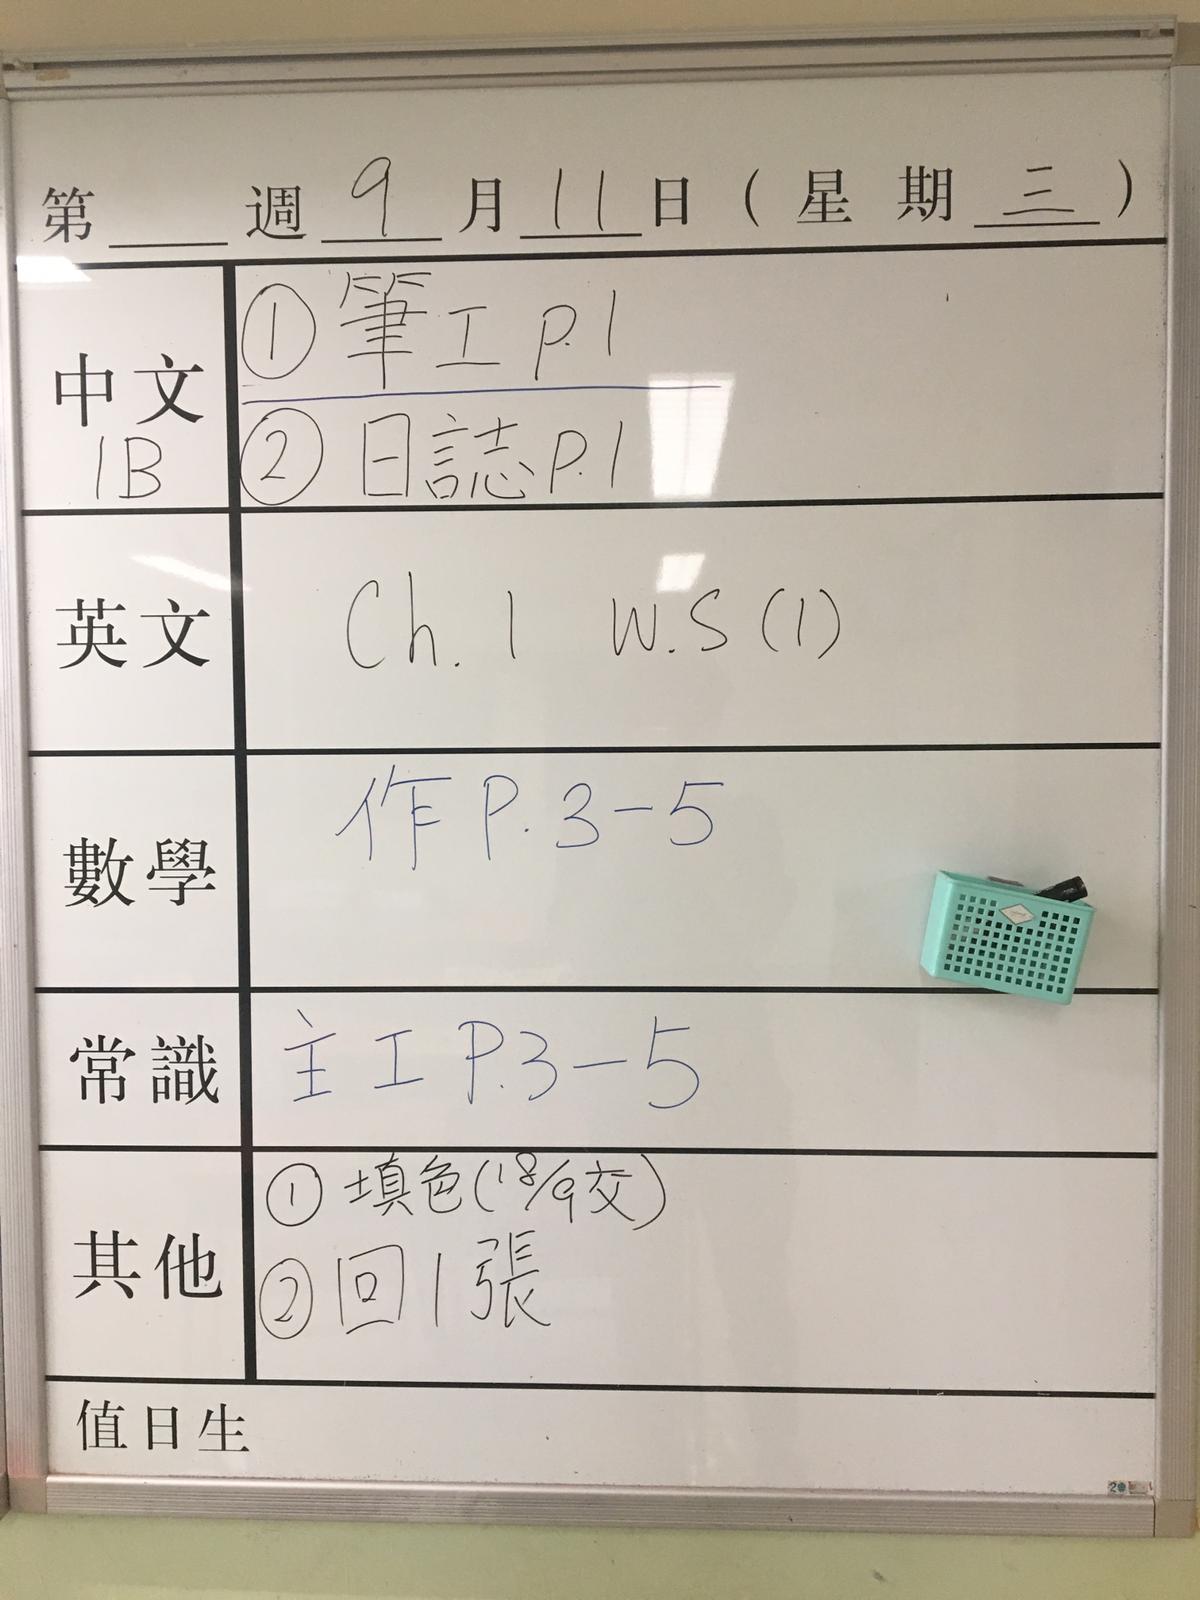 第 週 9 月 11 日 ( 星 期 三 )
中文
1B
① 筆工 p.1
② 日誌 p.1
英文
Ch. 1 W.S (1)
數學
作 P. 3-5
常識
主工 P.3-5
其他
① 填色(18/9交)
② 回1張
值日生